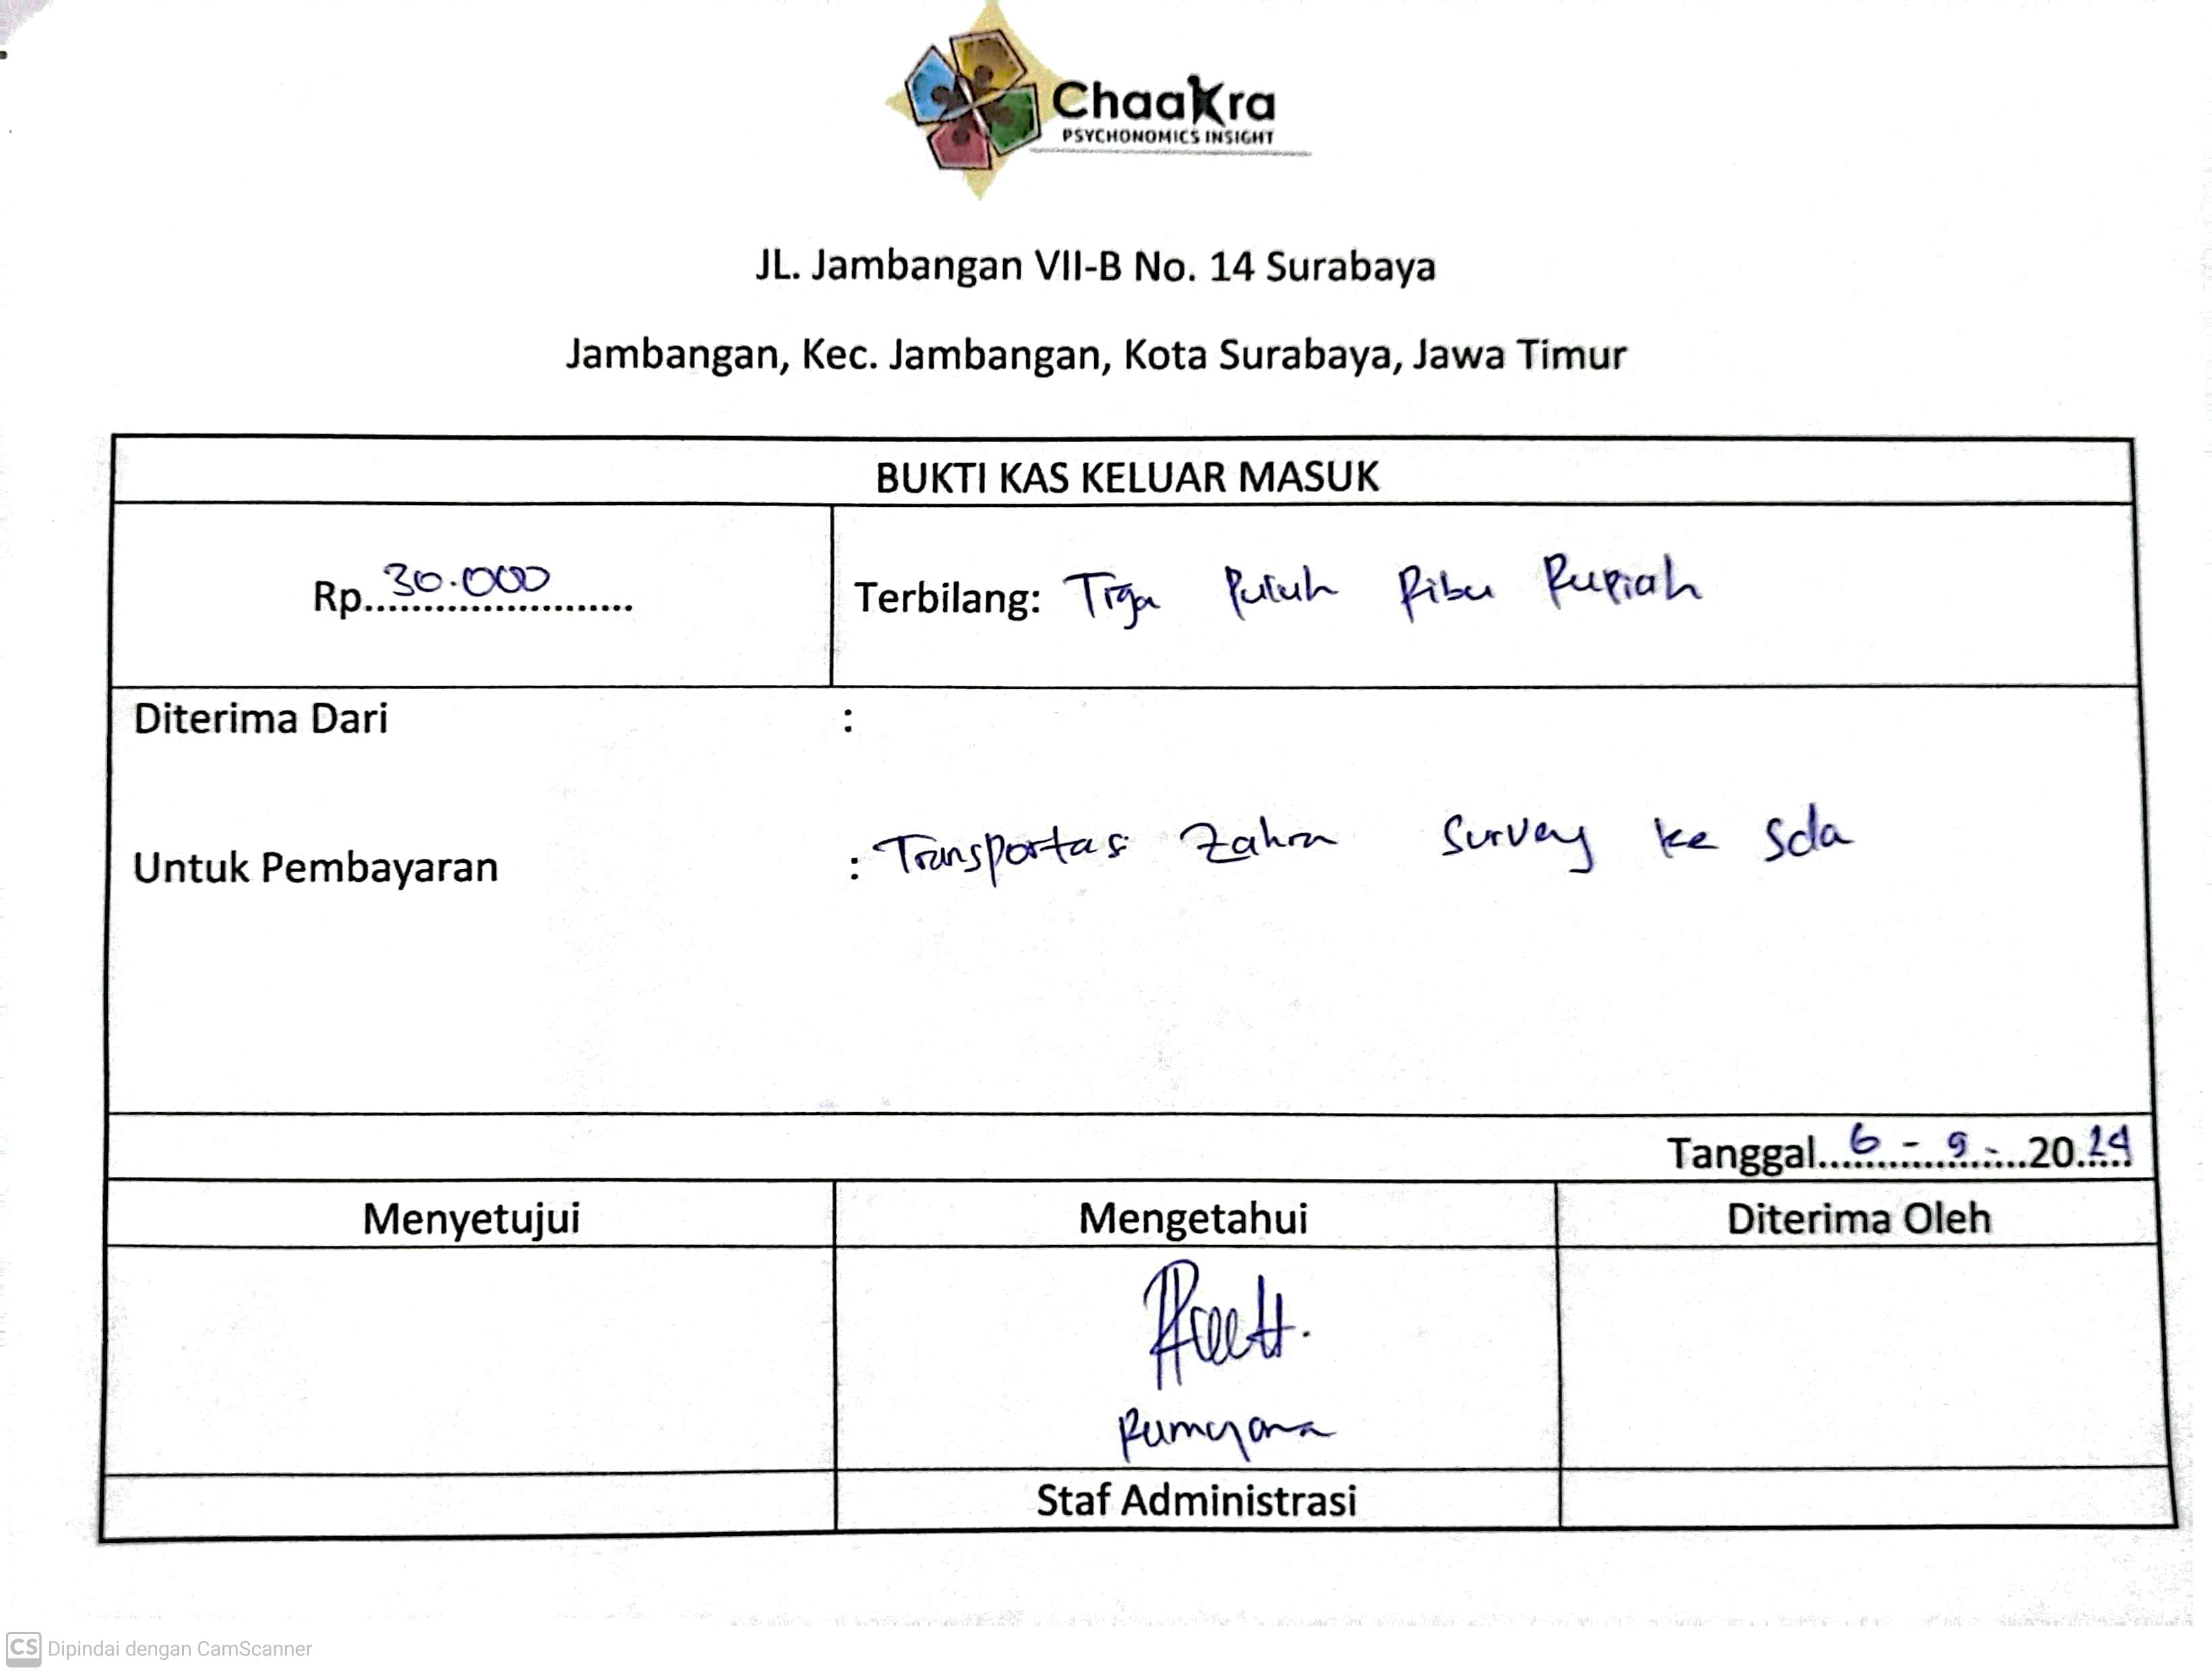 Chaakra
PSYCHONOMICS INSIGHT
JL. Jambangan VII-B No. 14 Surabaya
Jambangan, Kec. Jambangan, Kota Surabaya, Jawa Timur
BUKTI KAS KELUAR MASUK
Rp. 30.000
Terbilang: Tiga Puluh Ribu Rupiah
Diterima Dari :
Untuk Pembayaran : Transportasi Zahra Survey ke Sda
Tanggal 6 - 9 - 2024
Menyetujui Mengetahui Diterima Oleh
Rumeyana
Staf Administrasi
CS Dipindai dengan CamScanner